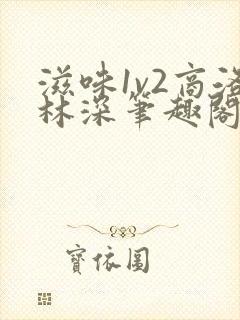 滋味1v2高洛
林深笔趣閣
寶依圓